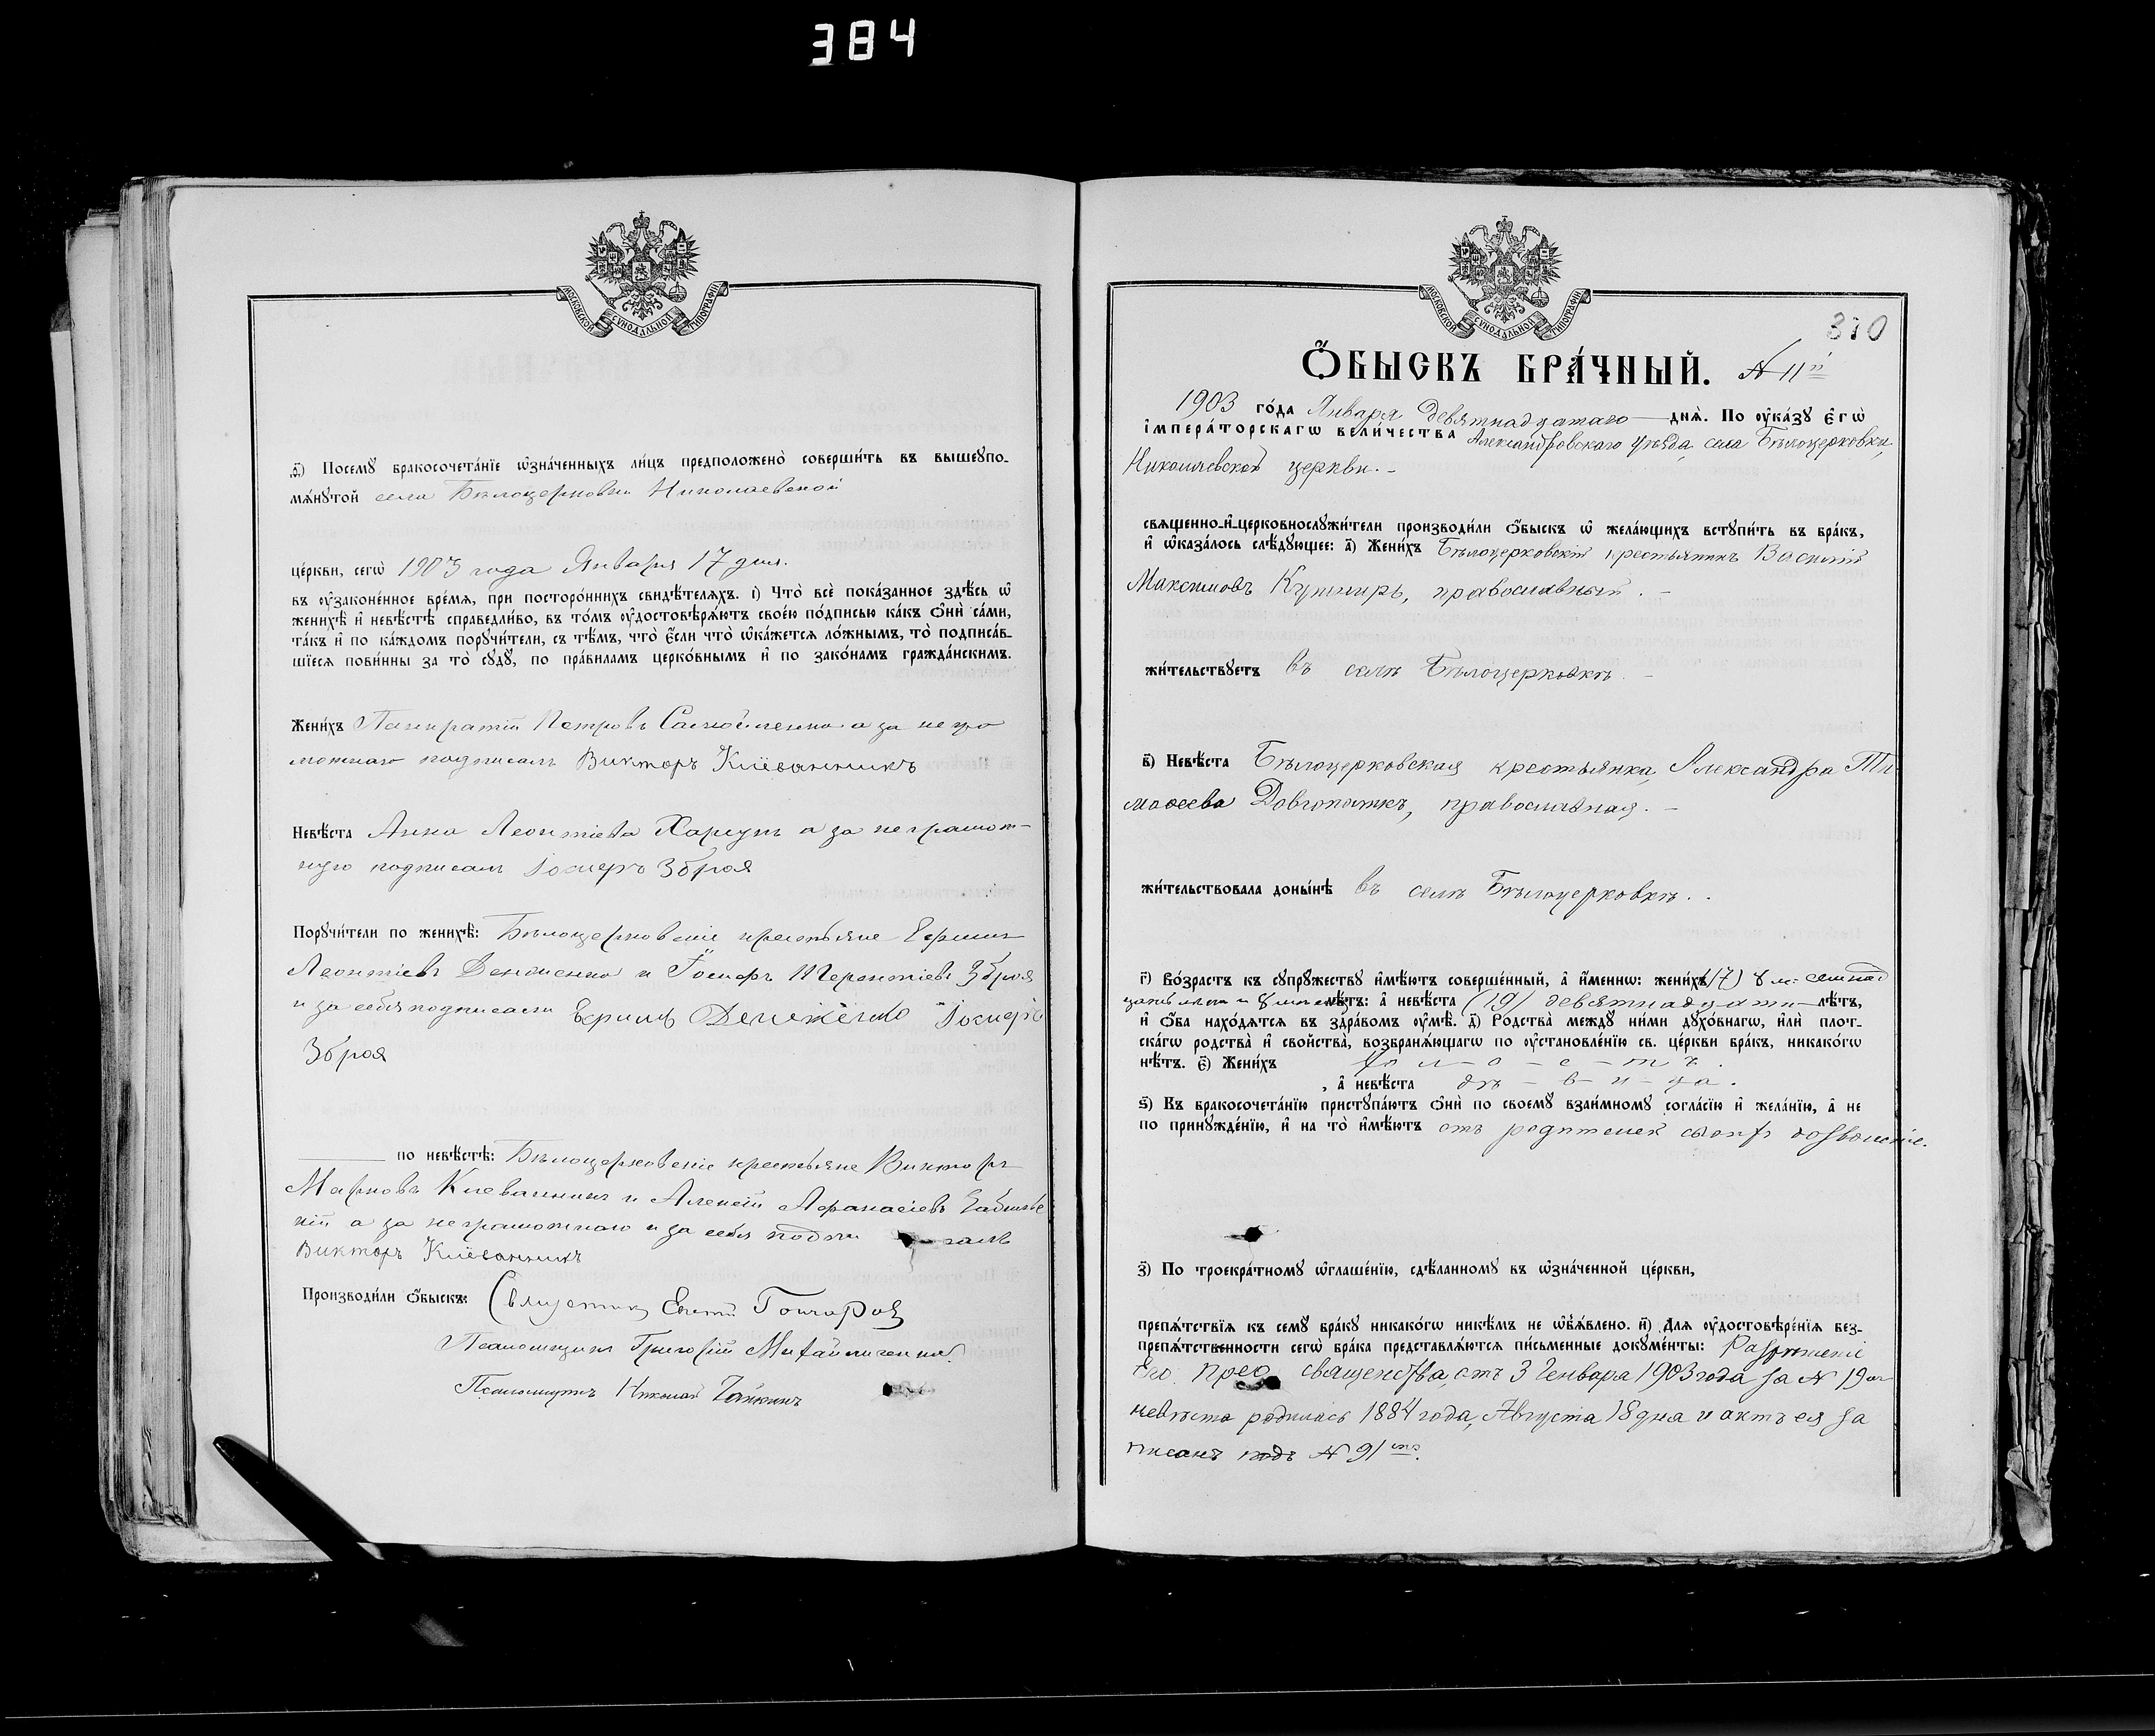 384
МОСКОВСКОЙ СѴНОДАЛЬНОЙ ТИПОГРАФІИ
д҃) Посемꙋ бракосочета́нїе ѡ҆зна́ченныхъ ли́цъ предположено̀ соверши́ть въ вышеꙋпо-
мѧ́нꙋтой села Бѣлоцерковки Николаевской
це́ркви, сегѡ̀ 1903 года Января 17 дня.
въ ᲂу҆законе́нное вре́мѧ, при посторо́ннихъ свидѣ́телѧхъ. і҃) Что̀ всѐ пока́занное здѣ́сь ѡ҆
женихѣ̀ и҆ невѣ́стѣ справедли́во, въ то́мъ ᲂу҆достовѣрѧ́ютъ свое́ю по́дписью ка́къ ѻ҆нѝ са́ми,
та́къ и҆ по ка́ждомъ порꙋчи́тели, съ тѣ́мъ, что̀ є҆́сли что̀ ѡ҆ка́жетсѧ ло́жнымъ, то̀ подписа́в-
шїесѧ пови́нны за то̀ сꙋдꙋ̀, по пра́виламъ церко́внымъ и҆ по зако́намъ гражда́нскимъ.
Жени́хъ Панкратій Петровъ а за негра
мотнаго подписалъ Викторъ Кліованникъ
Невѣ́ста Анна Леонтіева Харунъ а за неграмот-
ную подписалъ Іосифъ Зброя
Порꙋчи́тели по женихѣ̀: Бѣлоцерковскіе крестьяне Ефимъ
Леонтіевъ Денеженко и Іосифъ Терентіевъ Зброя
и за себя подписали Ефимъ Денеженко Іосифъ
Зброя
по невѣ́стѣ: Бѣлоцерковскіе крестьяне Викторъ
Марковъ и Алексій Афанасіевъ
а за неграмотнаго и за себя подпи салъ
Викторъ Кліованникъ
Производи́ли ѻ҆́быскъ: Священникъ Гончаровъ
Псаломщикъ Григорій Михайличенко.
Псаломщикъ Николай Чайкинъ
МОСКОВСКОЙ СѴНОДАЛЬНОЙ ТИПОГРАФІИ
310
Ѻ҆́БЫСКЪ БРА́ЧНЫЙ. № 11й
1903 го́да Января девятнадцатаго днѧ̀. По ᲂу҆ка́зꙋ є҆гѡ̀
і҆мпера́торскагѡ вели́чества Александровскаго уѣзда, села Бѣлоцерковки,
Николаевской церкви.-
свѧщенно-и҆-церковнослꙋжи́тели производи́ли ѻ҆́быскъ ѡ҆ жела́ющихъ встꙋпи́ть въ бра́къ,
и҆ ѡ҆каза́лось слѣ́дꙋющее: а҃) Жени́хъ Бѣлоцерковскій крестьянинъ Василій
Максимовъ Кушниръ, православный. -
жи́тельствꙋетъ въ селѣ Бѣлоцерковкѣ. -
в҃) Невѣ́ста Бѣлоцерковская крестьянка, Александра Ти-
моѳеева Довгопятъ, православная. -
жи́тельствовала доны́нѣ въ селѣ Бѣлоцерковкѣ..
г҃) Во́зрастъ къ сꙋпрꙋ́жествꙋ и҆мѣ́ютъ соверше́нный, а҆ и҆́меннѡ: жени́хъ (17) 8 м. семнад
цать лѣтъ и 8 лѣ́тъ: а҆ невѣ́ста (19) девятнадцати лѣ́тъ,
и҆ ѻ҆́ба нахо́дѧтсѧ въ здра́вомъ ᲂу҆мѣ̀. д҃) Родства̀ междꙋ̀ ни́ми дꙋхо́внагѡ, и҆лѝ плот-
ска́гѡ родства̀ и҆ сво́йства, возбранѧ́ющагѡ по ᲂу҆становле́нїю св. це́ркви бра́къ, никако́гѡ
нѣ́тъ. є҃) Жени́хъ хо - л - о - с - т ъ.
, а҆ невѣ́ста дѣ - в - и - ца.
ѕ҃) Къ бракосочета́нїю пристꙋпа́ютъ ѻ҆нѝ по своемꙋ̀ взаи́мномꙋ согла́сїю и҆ жела́нїю, а҆ не
по принꙋжде́нїю, и҆ на то̀ и҆мѣ́ютъ отъ родителей своихъ дозволеніе.
з҃) По троекра́тномꙋ ѡ҆глаше́нїю, сдѣ́ланномꙋ въ ѡ҆зна́ченной це́ркви,
препѧ́тствїѧ къ семꙋ̀ бра́кꙋ никако́гѡ никѣ́мъ не ѡ҆б̾ѧ́влено. и҃) Длѧ ᲂу҆достовѣре́нїѧ без-
препѧ́тственности сегѡ̀ бра́ка представлѧ́ютсѧ пи́сьменные докꙋме́нты: Разрѣшеніе
Его Прео священства, отъ 3 Генваря 1903 года за № 19
невѣста родилась 1884 года, Августа 18 дня и актъ ея за
писанъ подъ № 91мъ.